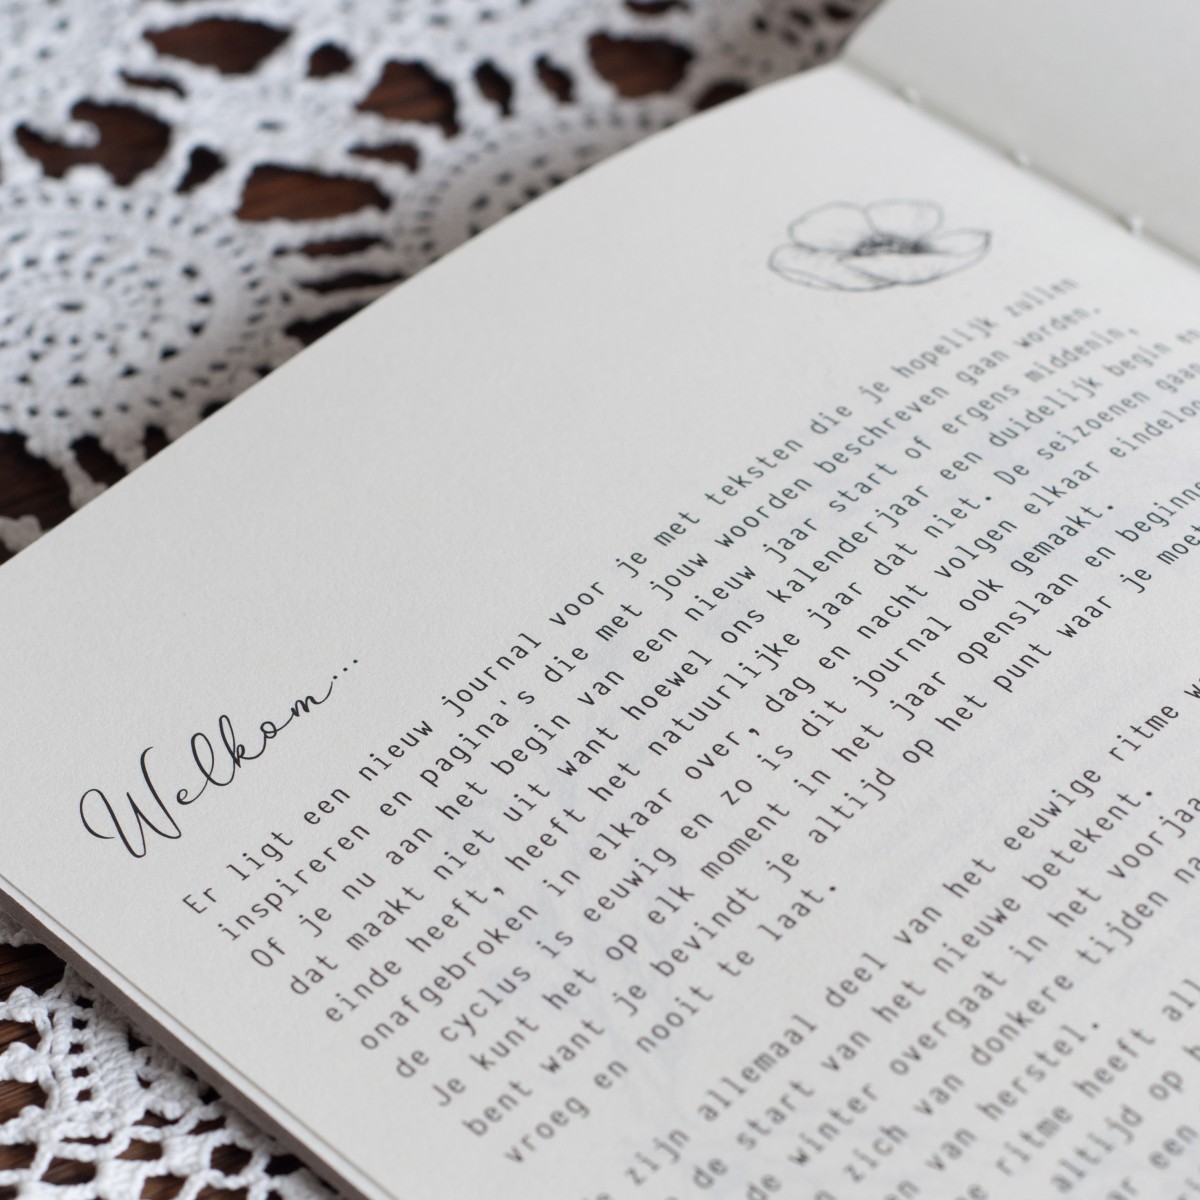 Welkom...
Er ligt een nieuw journal voor je met teksten die je hopelijk zullen
inspireren en pagina's die met jouw woorden beschreven gaan worden.
Of je nu aan het begin van een nieuw jaar start of ergens middenin,
dat maakt niet uit want hoewel ons kalenderjaar een duidelijk begin en
einde heeft, heeft het natuurlijke jaar dat niet. De seizoenen gaan
onafgebroken in elkaar over, dag en nacht volgen elkaar eindeloos
de cyclus is eeuwig en zo is dit journal ook gemaakt.
Je kunt het op elk moment in het jaar openslaan en beginne
bent want je bevindt je altijd op het punt waar je moet
vroeg en nooit te laat.
zijn allemaal deel van het eeuwige ritme
de start van het nieuwe betekent.
de winter overgaat in het voorjaa
zich van donkere tijden na
van herstel.
ritme heeft all
altijd op
een